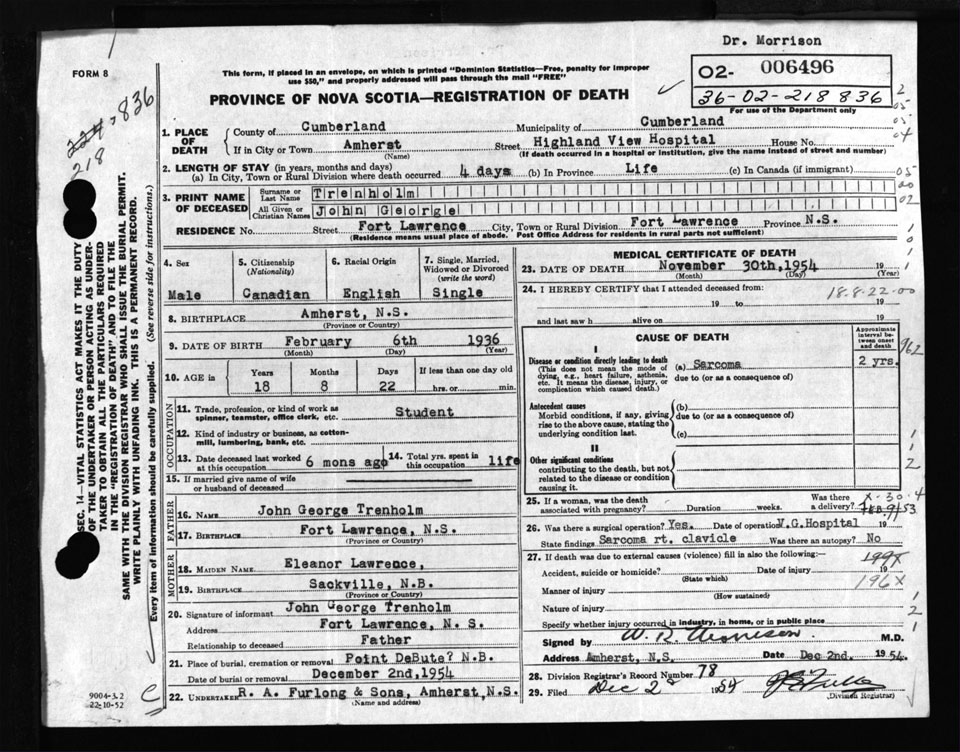 Dr. Morrison
FORM 8
This form, if placed in an envelope, on which is printed "Dominion Statistics—Free, penalty for improper
use $50," and properly addressed will pass through the mail "FREE"
02- 006496
36-02-218 836
For use of the Department only
PROVINCE OF NOVA SCOTIA—REGISTRATION OF DEATH
224, 836
218
SEC. 14—VITAL STATISTICS ACT MAKES IT THE DUTY
OF THE UNDERTAKER OR PERSON ACTING AS UNDER-
TAKER TO OBTAIN ALL THE PARTICULARS REQUIRED
IN THE "REGISTRATION OF DEATH" AND TO FILE THE
SAME WITH THE DIVISION REGISTRAR WHO SHALL ISSUE THE BURIAL PERMIT.
WRITE PLAINLY WITH UNFADING INK. THIS IS A PERMANENT RECORD.
Every item of information should be carefully supplied. (See reverse side for instructions.)
1. PLACE OF DEATH
County of Cumberland Municipality of Cumberland
If in City or Town Amherst Street Highland View Hospital House No.
(Name) (If death occurred in a hospital or institution, give the name instead of street and number)
2. LENGTH OF STAY (in years, months and days)
(a) In City, Town or Rural Division where death occurred 4 days (b) In Province Life (c) In Canada (if immigrant)
3. PRINT NAME OF DECEASED
Surname or Last Name Trenholm
All Given or Christian Names John George
RESIDENCE No. Street Fort Lawrence City, Town or Rural Division Fort Lawrence Province N.S.
(Residence means usual place of abode. Post Office Address for residents in rural parts not sufficient)
4. Sex Male
5. Citizenship (Nationality) Canadian
6. Racial Origin English
7. Single, Married, Widowed or Divorced (write the word) Single
8. BIRTHPLACE Amherst, N.S.
(Province or Country)
9. DATE OF BIRTH February 6th 1936
(Month) (Day) (Year)
10. AGE in Years Months Days If less than one day old
18 8 22 hrs. or min.
OCCUPATION
11. Trade, profession, or kind of work as
spinner, teamster, office clerk, etc. Student
12. Kind of industry or business, as cotton-
mill, lumbering, bank, etc.
13. Date deceased last worked
at this occupation 6 mons ago
14. Total yrs. spent in
this occupation life
15. If married give name of wife
or husband of deceased
FATHER
16. NAME John George Trenholm
17. BIRTHPLACE Fort Lawrence, N.S.
(Province or Country)
MOTHER
18. MAIDEN NAME Eleanor Lawrence,
19. BIRTHPLACE Sackville, N.B.
(Province or Country)
20. Signature of informant John George Trenholm
Address Fort Lawrence, N. S.
Relationship to deceased Father
21. Place of burial, cremation or removal Point DeBute? N.B.
Date of burial or removal December 2nd, 1954
22. UNDERTAKER R. A. Furlong & Sons, Amherst, N.S.
(Name and address)
9004-3.2
22-10-52
C
MEDICAL CERTIFICATE OF DEATH
23. DATE OF DEATH November 30th, 1954 19
(Month) (Day) (Year)
24. I HEREBY CERTIFY that I attended deceased from:
18-8-22-00
19 to 19
and last saw h alive on 19
CAUSE OF DEATH
Approximate interval between onset and death
I
Disease or condition directly leading to death
(This does not mean the mode of
dying, e.g., heart failure, asthenia,
etc. It means the disease, injury, or
complication which caused death.)
(a) Sarcoma 2 yrs.
due to (or as a consequence of)
962
Antecedent causes
Morbid conditions, if any, giving
rise to the above cause, stating the
underlying condition last.
(b)
due to (or as a consequence of)
(c)
II
Other significant conditions
contributing to the death, but not
related to the disease or condition
causing it.
25. If a woman, was the death
associated with pregnancy? Duration weeks. Was there a delivery?
26. Was there a surgical operation? Yes. Date of operation V.G.Hospital 19
State findings Sarcoma rt. clavicle Was there an autopsy? No
27. If death was due to external causes (violence) fill in also the following:
Accident, suicide or homicide? Date of injury 19
(State which)
196X
Manner of injury
(How sustained)
Nature of injury
Specify whether injury occurred in industry, in home, or in public place
Signed by W. R. Morrison M.D.
Address Amherst, N.S. Date Dec 2nd. 1954
28. Division Registrar's Record Number 78
29. Filed Dec 2 1954
(Division Registrar)